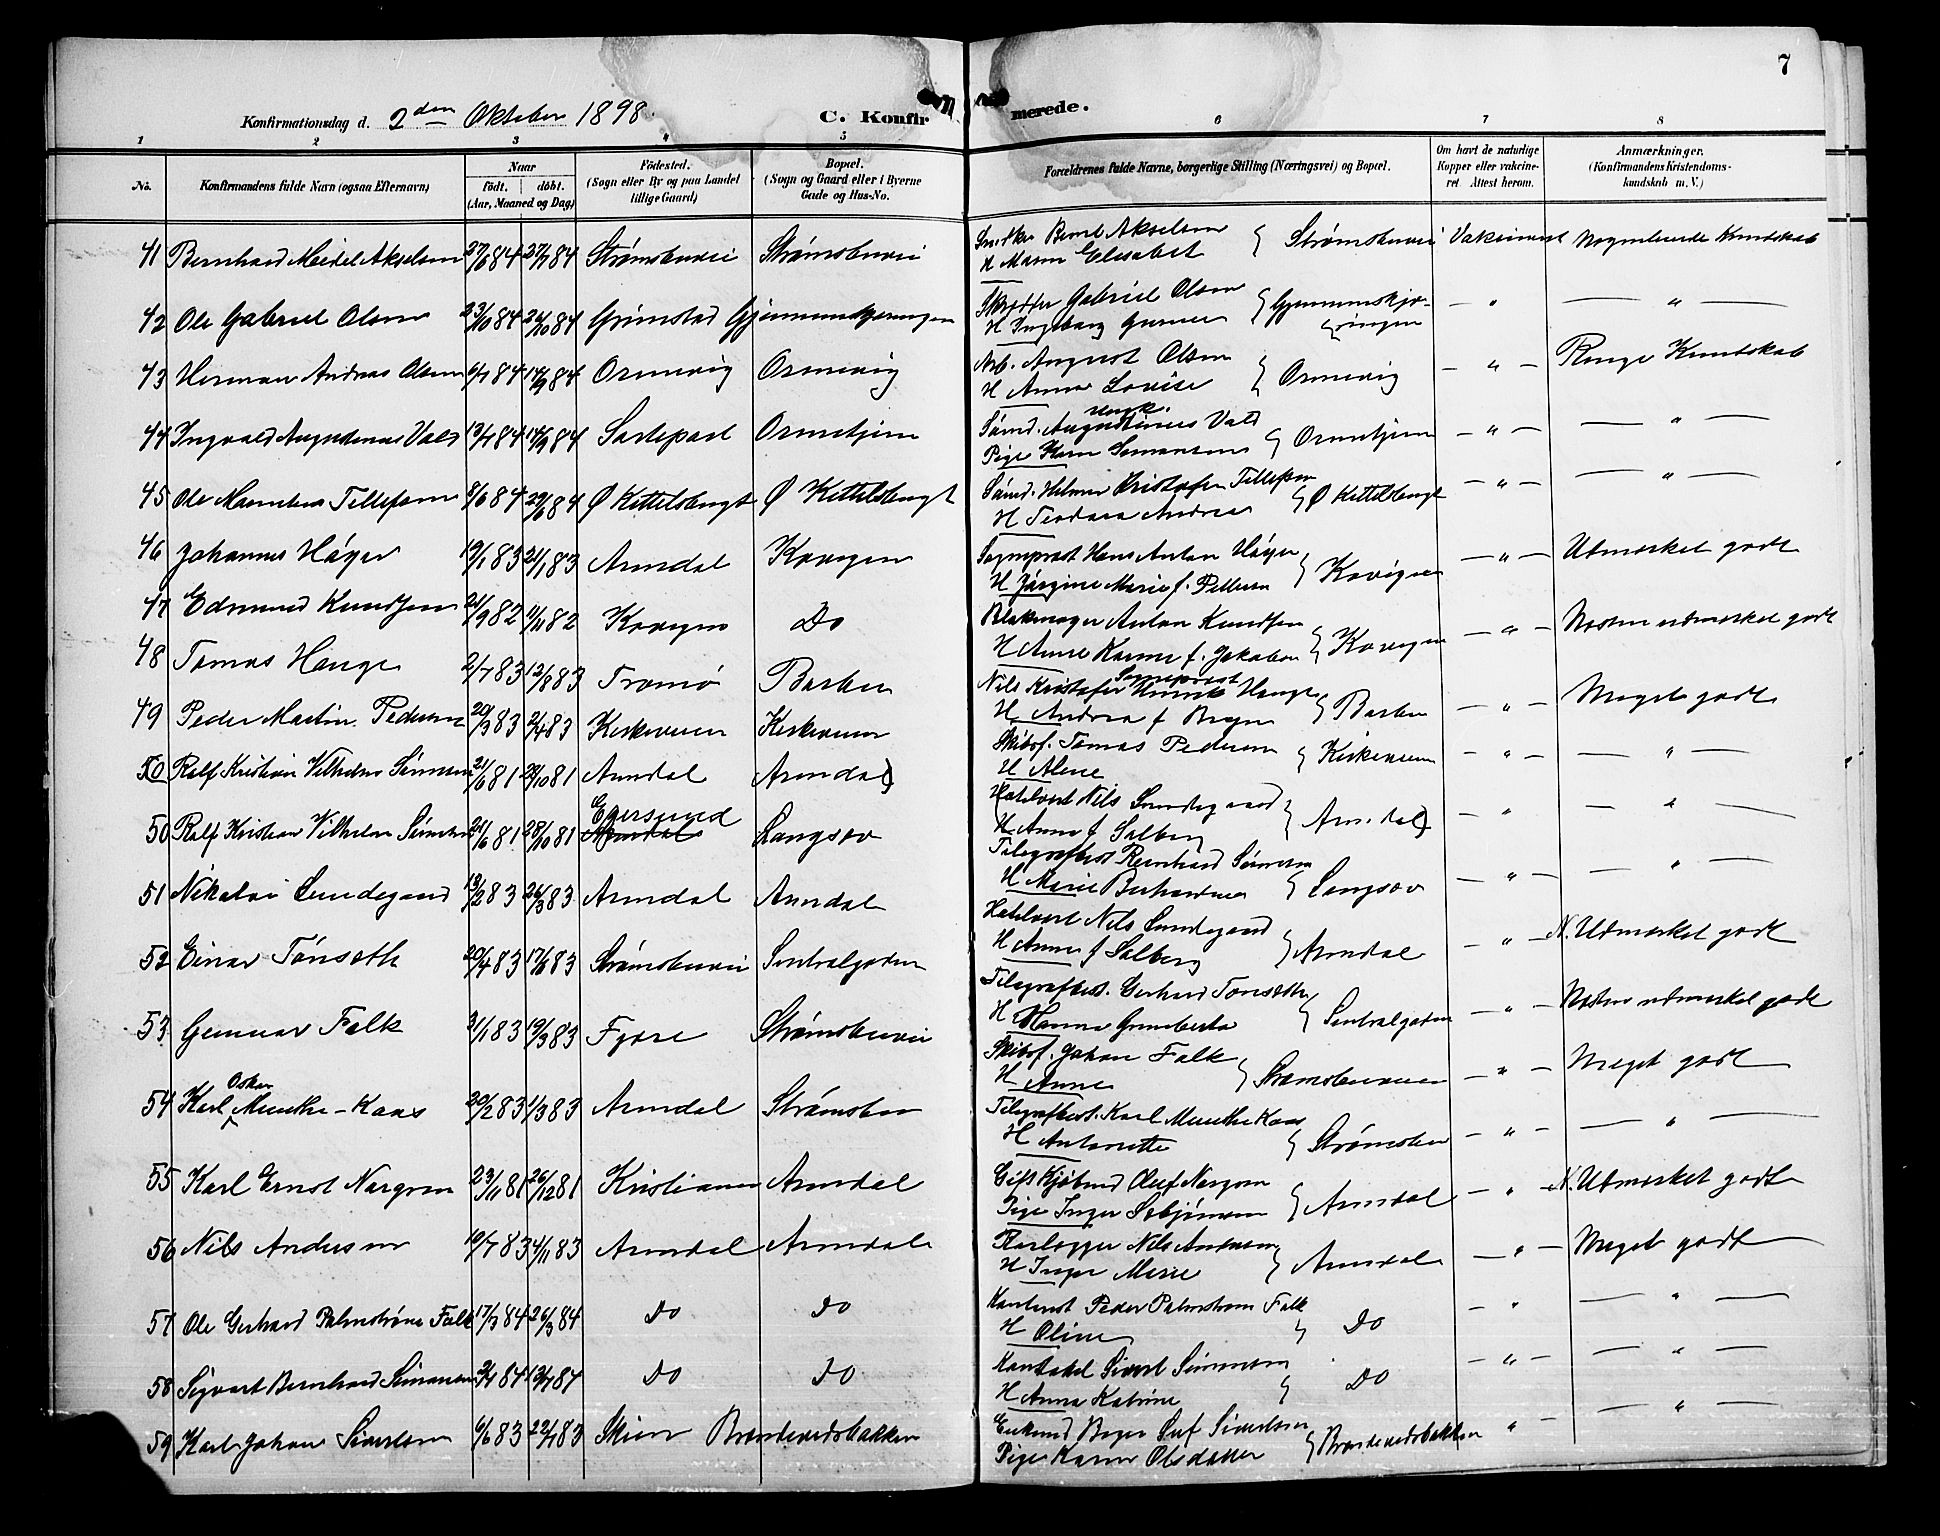 7
Konfirmationsdag d. 2den Oktober 1898.
C. Konfirmerede.
1 2 3 4 5 6 7 8
No.
Konfirmandens fulde Navn (ogsaa Efternavn)
Naar
født. døbt.
(Aar, Maaned og Dag)
Fødested.
(Sogn eller By og paa Landet
tillige Gaard)
Bopæl.
(Sogn og Gaard eller i Byerne
Gade og Hus-No.
Forældrenes fulde Navne, borgerlige Stilling (Næringsvei) og Bopæl.
Om havt de naturlige
Kopper eller vakcine-
ret Attest herom.
Anmærkninger.
(Konfirmandens Kristendoms-
kundskab m. V.)
41 Bernhard Meidel Akselsen 27/6 84 27/7 84 Strømsbuvei Strømsbuvei
Bernt Akselsen
H Maren Elisabet } Strømsbuvei Vaksineret Nogenlunde Kundskab
42 Ole Gabriel Olsen 23/10 84 26/10 84 Grimstad Gjennemskjæringen
Skrædder Gabriel Olsen
H Ingeborg Gurine } Gjennemskjæ-
ringen — " — " —
43 Herman Andreas Olsen 6/7 84 14/9 84 Ormevig Ormevig
Arb. August Olsen
H Anna Lovise } Ormevig — " — Ringe Kundskab
44 Ingvald Augustenus Vold 13/7 84 14/9 84
Sømd. Augustinus Vold
Pige Karen — " — " —
45 Ole Tellefsen 8/6 84 29/6 84 Ø Kittelsbugt Ø Kittelsbugt
Sømd. Hilmar Kristofer Tellefsen
H Teodora Andrea } Ø Kittelsbugt — " — " —
46 Johannes Høyer 19/1 83 21/1 83 Arendal Kovigen
Sogneprest Hans Anton Høyer
H Jørgine Marie f. Pettersen } Kovigen — " — Utmerket godt
47 Edmund Knudsen 21/9 82 11/11 82 Kovigen Do
Blikmager Anton Knudsen
H Anne Karine f. Jakobsen } Kovigen — " — Næsten udmerket godt
48 Tomas Hauge 2/7 83 12/8 83 Tromø Barbu
Sogneprest
Nils Kristofer Henrik Hauge
H Andrea f } Barbu — " — Meget godt
49 Peder Martin Pedersen 20/3 83 2/4 83 Kirkeveien Kirkeveien
Skibsf. Tomas Pedersen
H Alene } Kirkeveien — " — " —
50 Ralf Kristian Vilhelm Simonsen 21/6 81 28/10 81 Arendal Arendal)
(Hotelvert Nils Lundegaard
H Anne f Solberg } Arendal) — " — " —
50 Ralf Kristian Vilhelm Simonsen 21/6 81 28/10 81 Arendal Egersund Langsæv
Telegrafbest. Reinhard Simonsen
H Marie } Langsæv — " — " —
51 Nikolai Lundegaard 13/2 83 26/3 83 Arendal Arendal
Hotelvert Nils Lundegaard
H Anne f Solberg } Arendal — " — N. Utmerket godt
52 Einar Tønseth 20/4 83 17/6 83 Strømsbuvei Sentralgaden
Telegrafbest. Gerhard Tønseth
H Hanna } Sentralgaden — " — Næsten udmerket godt
53. Gunnar Falk 31/1 83 19/3 83 Fjære Strømsbuvei
Skibsf. Johan Falk
H Anne } Strømsbuveien — " — Meget godt
54 Karl Oskar Munthe-Kaas 20/2 83 1/3 83 Arendal Strømsbu
Telegrafbest. Karl Munthe Kaas
H Antonette } Strømsbu — " — " —
55 Karl Ernst 23/11 81 26/12 81 Kristiania Arendal
Gift Kjøbmd Oluf
Pige Inger } Arendal — " — N. Utmerket godt
56 Nils Andersen 10/7 83 4/11 83 Arendal Arendal
Nils Andersen
H Inger Marie } Arendal — " — Meget godt
57 Ole Gerhard Palmstrøm Falk 17/2 84 26/3 84 Do Do
Peder Palmstrøm Falk
H Oline } Do — " — " —
58 Sigvart Bernhard Simonsen Do Do
Sivert Simonsen
H Anna Katrine } Do — " — " —
59 Karl Johan Sivertsen 6/6 83 22/7 83 Skien Brændevedsbakken
Enkemd
Pige Karen Olsdatter } Brændevedsbakken " — " —